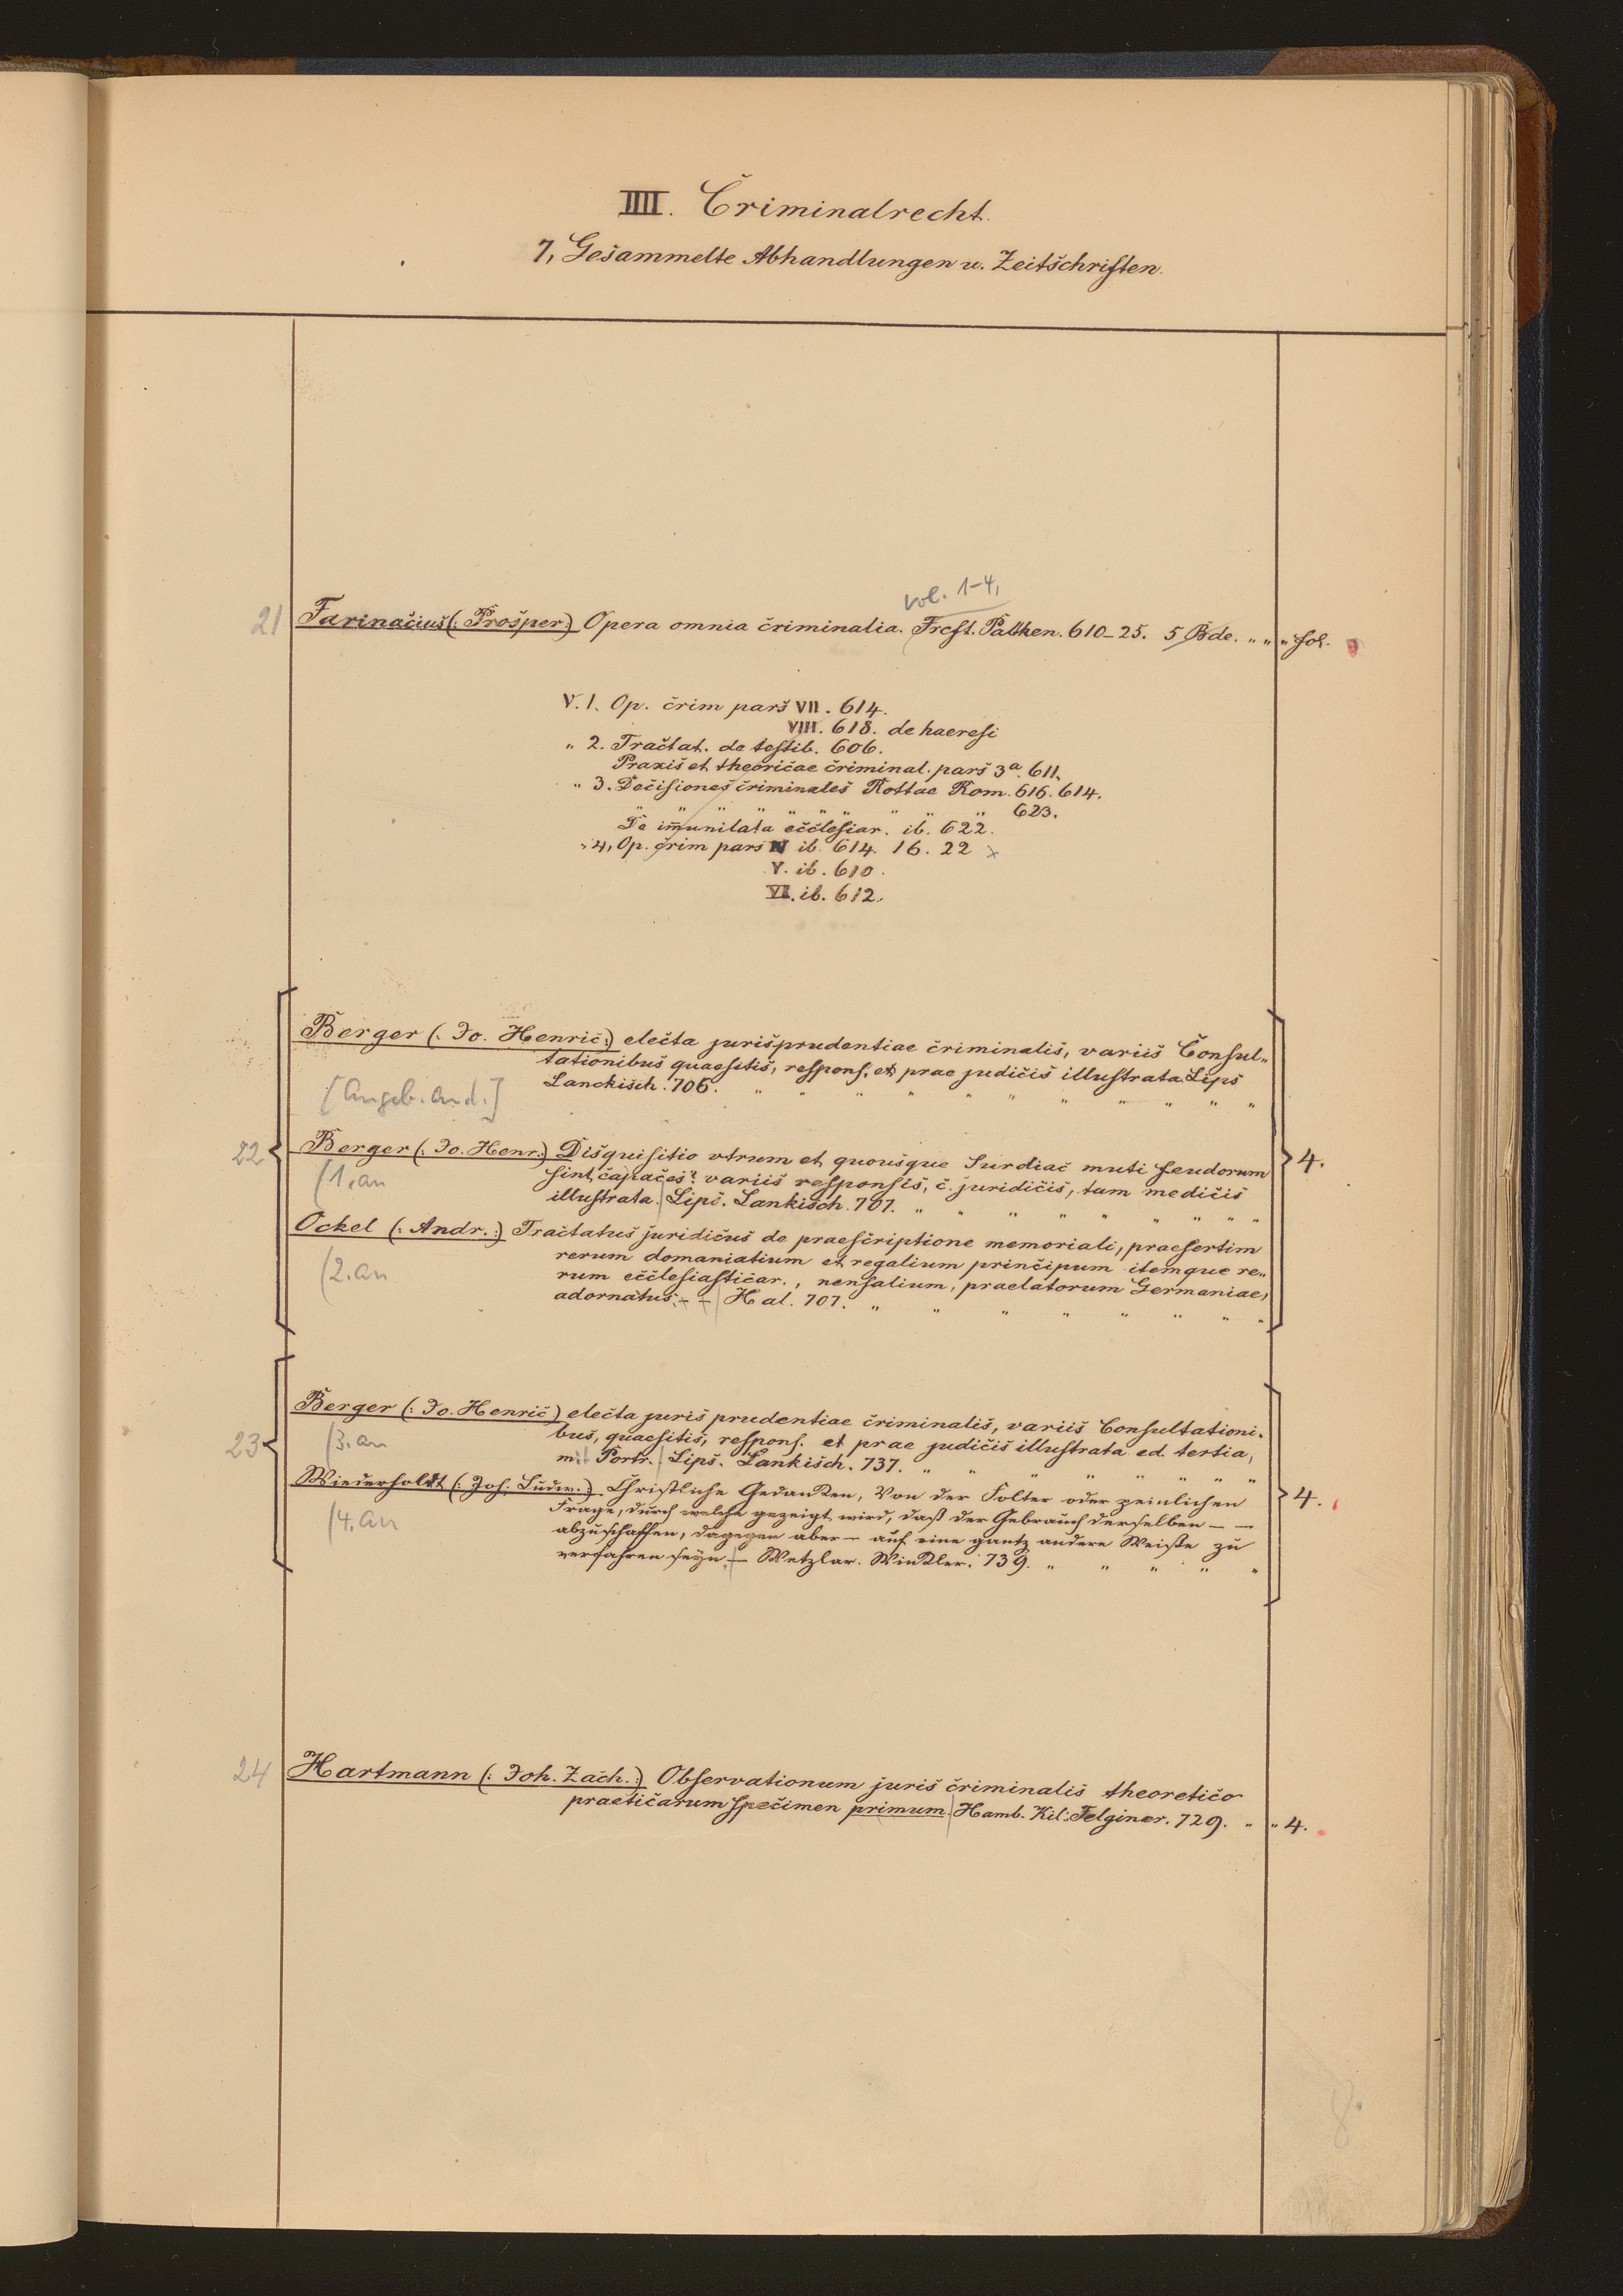 IIII. Criminalrecht.
7, Gesammelte Abhandlungen u. Zeitschriften.
vol. 1-4,
21 Farinacius (: Prosper:) Opera omnia criminalia. Frcft. Palthen. 610-25. 5 Bde. " " " fol.
V. 1. Op. crim pars VII. 614.
VIII. 618. de haeresi
" 2. Tractat. de testib. 606.
Praxis et theoricae criminal. pars 3a. 611.
" 3. Decisiones criminales Rottae Rom. 616. 614.
" " " " " " " " " " 623.
De im̄unitata ecclesiar. ib. 622.
" 4, Op. crim pars IV ib. 614. 16. 22 x
V. ib. 610.
VI. ib. 612.
Berger (: Jo. Henric:) electa jurisprudentiae criminalis, variis Consul"
tationibus quaesitis, respons. et prae judiciis illustrata. Lips
Lanckisch. 706. " " " " " " " " " "
[Angeb. and.]
22 Berger (: Jo. Henr:) Disquisitio utrum et quousque Surdiac muti feudorum 4.
sint capaces? variis responsis, c. juridicis, tam medicis
(1. an
illustrata. Lips. Lankisch. 707. " " " " " " " " "
Ockel (: Andr.:) Tractatus juridicus de praescriptione memoriali, praesertim
rerum domaniatium et regalium principum itemque re"
(2. an
rum ecclesiasticar., nensalium, praelatorum Germaniae,
adornatus. - - Hal. 707. " " " " " " " "
Berger (: Jo. Henric) electa juris prudentiae criminalis, variis Consultationi"
23 (3. an
bus, quaesitis, respons. et prae judiciis illustrata ed. tertia,
mit Portr. Lips. Lankisch. 737. " " " " " " " "
Wiederholdt (: Joh. Ludw.:) Christliche Gedanken, Von der Folter oder peinlichen 4.
Frage, durch welche gezeigt wird, daß der Gebrauch derselben - -
(4. an
abzuschaffen, dagegen aber - auf eine gantz andere Weiße zu
verfahren seyn. - Wetzlar. Winkler. 739. " " " " "
24 Hartmann (: Joh. Zach.:) Observationum juris criminalis theoretico
practicarum specimen primum. Hamb. Kil: Felginer. 729. " " 4.
8.